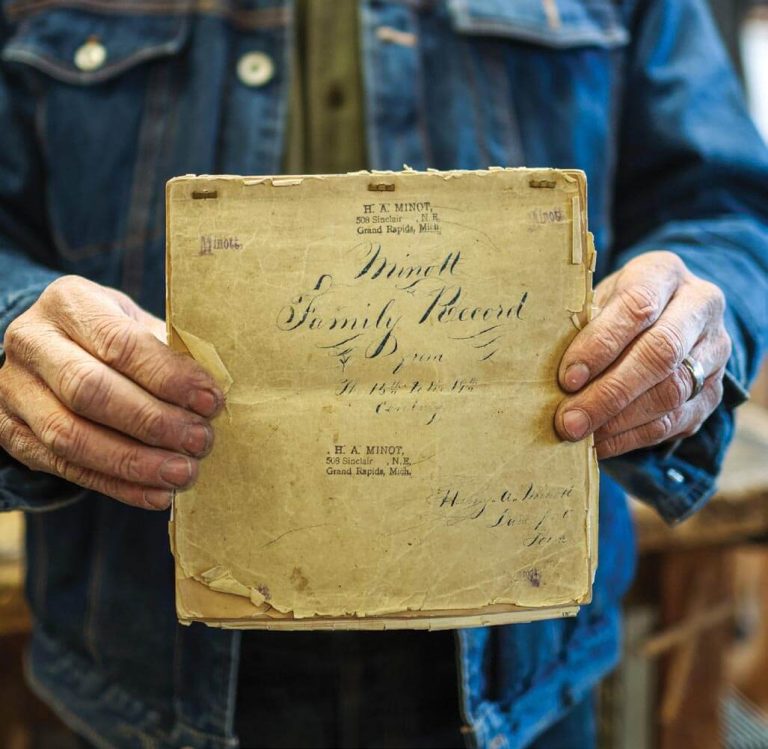 H. A. MINOT,
508 Sinclair , N.E.
Grand Rapids, Mich.
Minott.
Minott
Minott
Family Record
From
The 15th To the 19th
Century
H. A. MINOT,
508 Sinclair , N.E.
Grand Rapids, Mich.
A. Minott